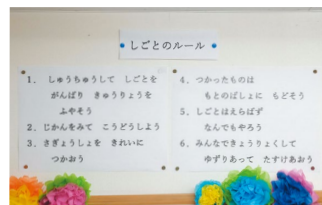 しごとのルール
1. しゅうちゅうして しごとを
がんばり きゅうりょうを
ふやそう
2. じかんをみて こうどうしよう
3. さぎょうしょを きれいに
つかおう
4. つかったものは
もとのばしょに もどそう
5. しごとはえらばず
なんでもやろう
6. みんなできょうりょくして
ゆずりあって たすけあおう